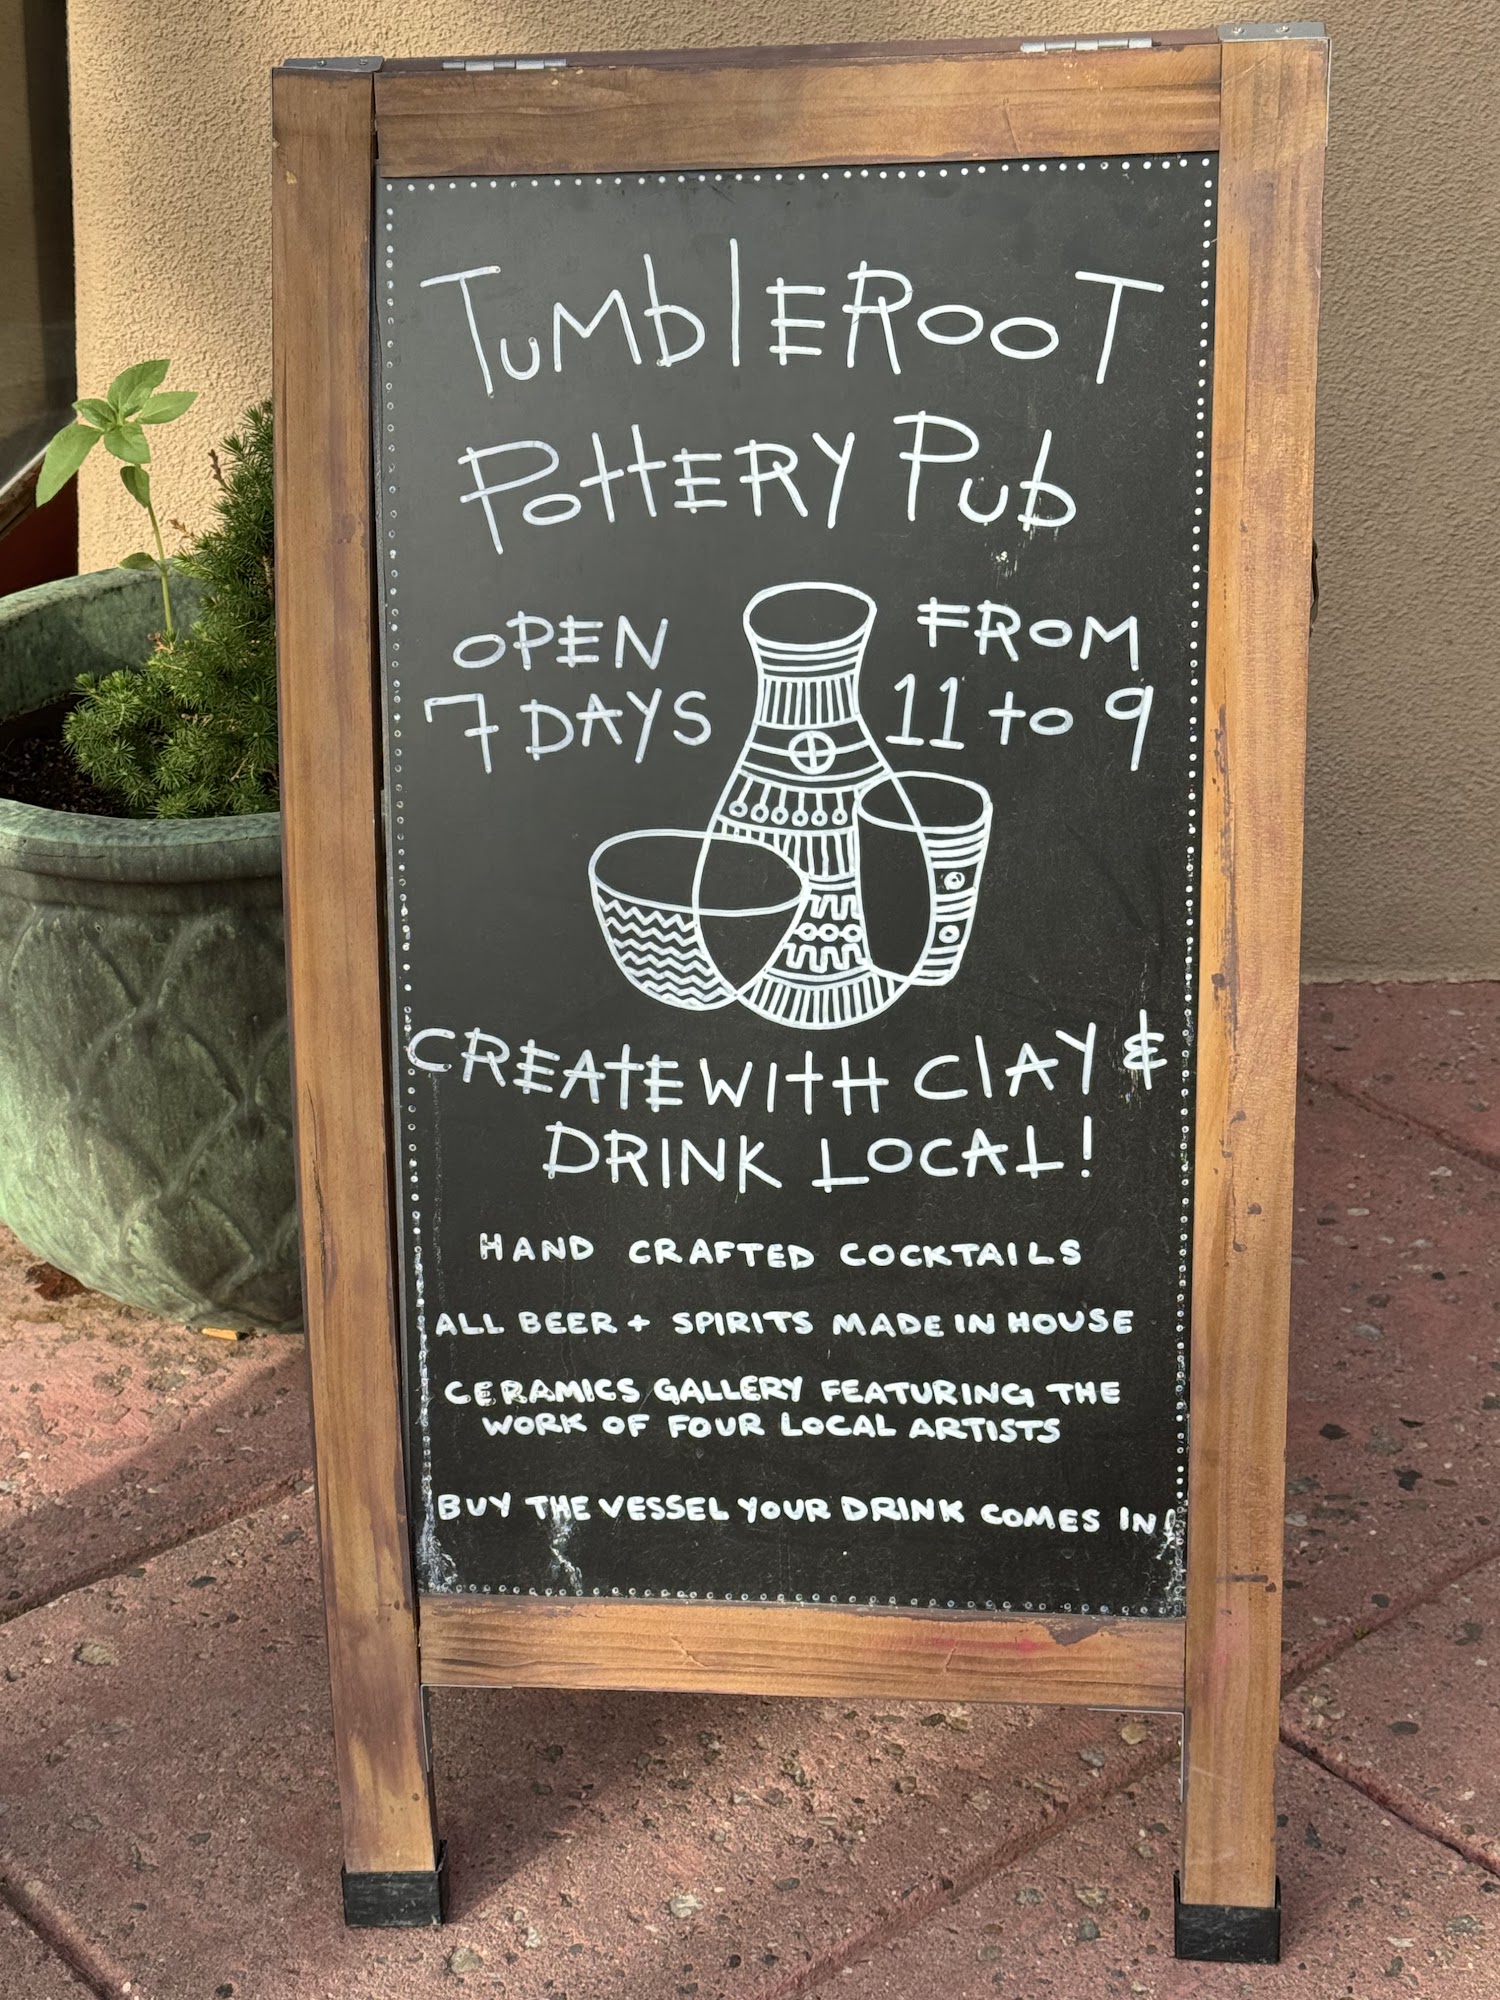 TumblERooT
PottERY Pub
OPEN FROM
7 DAYS 11 to 9
CREATE WITH ClAY &
DRINK LOCAL!
HAND CRAFTED COCKTAILS
ALL BEER + SPIRITS MADE IN HOUSE
CERAMICS GALLERY FEATURING THE
WORK OF FOUR LOCAL ARTISTS
BUY THE VESSEL YOUR DRINK COMES IN!